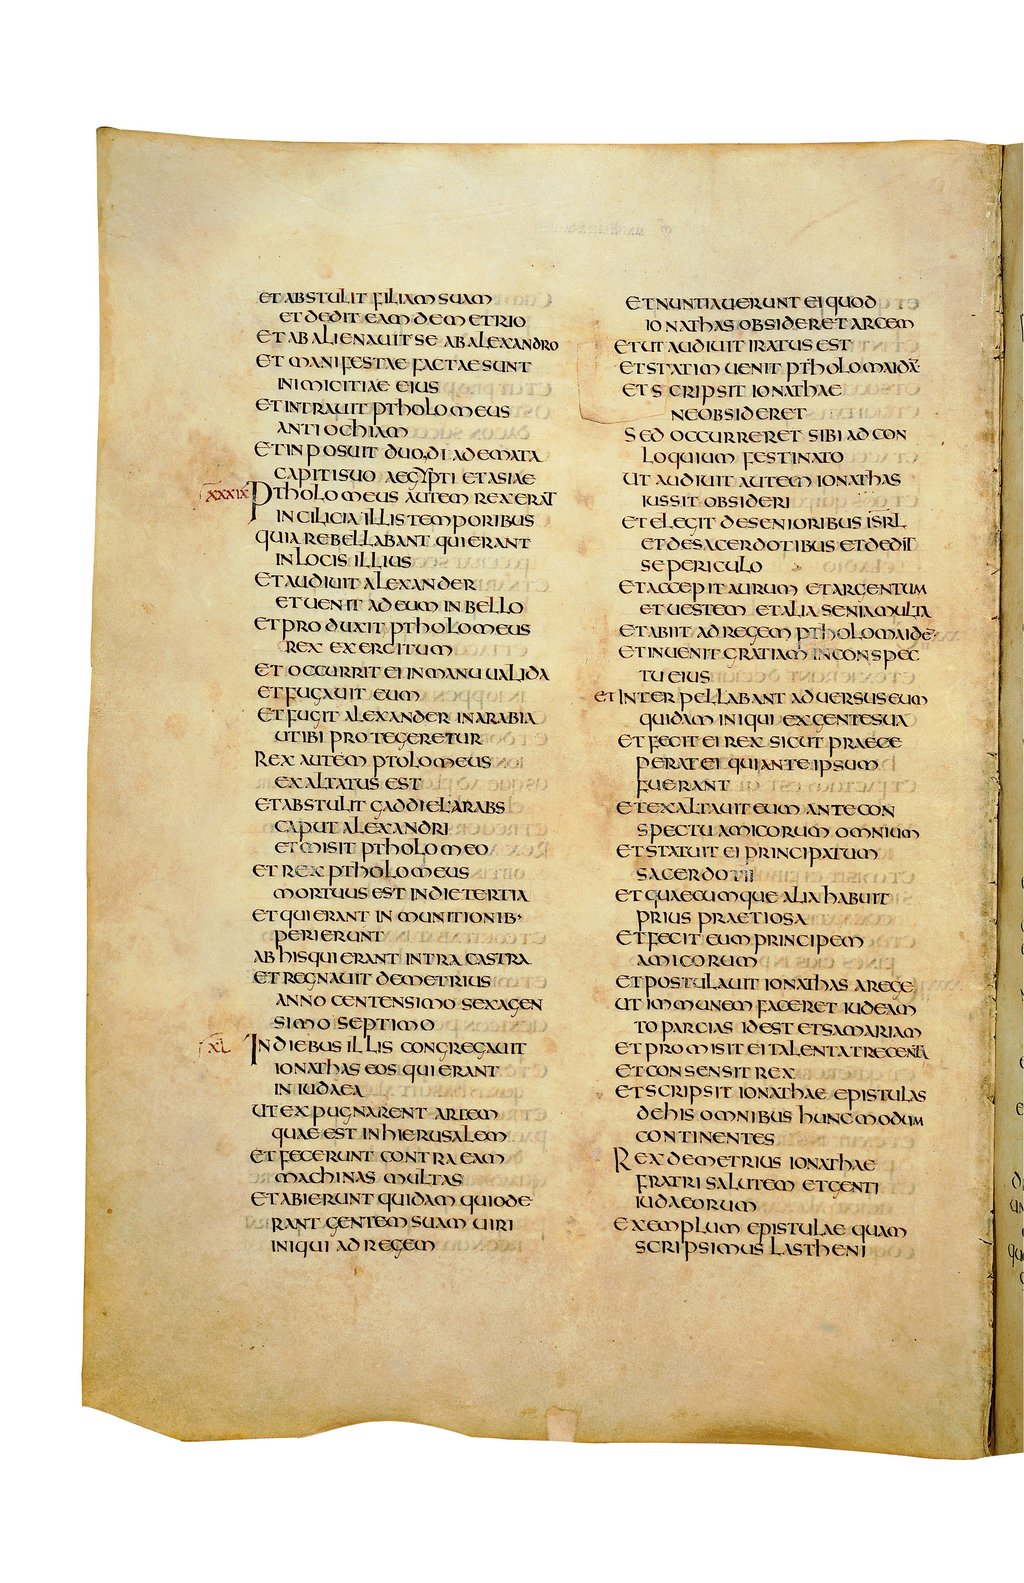 ET ABSTULIT FILIAM SUAM
ET DEDIT EAM DEMETRIO
ET ABALIENAUIT SE AB ALEXANDRO
ET MANIFESTAE FACTAE SUNT
INIMICITIAE EIUS
ET INTRAUIT PTHOLOMEUS
ANTIOCHIAM
ET INPOSUIT DUO DIADEMATA
CAPITI SUO AEGYPTI ET ASIAE
XXXIX PTHOLOMEUS AUTEM REX ERAT
IN CILICIA ILLIS TEMPORIBUS
QUIA REBELLABANT QUI ERANT
IN LOCIS ILLIUS
ET AUDIUIT ALEXANDER
ET UENIT AD EUM IN BELLO
ET PRODUXIT PTHOLOMEUS
REX EXERCITUM
ET OCCURRIT EI IN MANU UALIDA
ET FUGAUIT EUM
ET FUGIT ALEXANDER IN ARABIA
UT IBI PROTEGERETUR
REX AUTEM PTOLOMEUS
EXALTATUS EST
ET ABSTULIT GADDIEL ARABS
CAPUT ALEXANDRI
ET MISIT PTHOLOMEO
ET REX PTHOLOMEUS
MORTUUS EST IN DIE TERTIA
ET QUI ERANT IN MUNITIONIB·
PERIERUNT
AB HIS QUI ERANT INTRA CASTRA
ET REGNAUIT DEMETRIUS
ANNO CENTENSIMO SEXAGEN
SIMO SEPTIMO
XL IN DIEBUS ILLIS CONGREGAUIT
IONATHAS EOS QUI ERANT
IN IUDAEA
UT EXPUGNARENT ARCEM
QUAE EST IN HIERUSALEM
ET FECERUNT CONTRA EAM
MACHINAS MULTAS
ET ABIERUNT QUIDAM QUI ODE
RANT GENTEM SUAM UIRI
INIQUI AD REGEM
ET NUNTIAUERUNT EI QUOD
IONATHAS OBSIDERET ARCEM
ET UT AUDIUIT IRATUS EST
ET STATIM UENIT PTHOLOMAIDA̅·
ET SCRIPSIT IONATHAE
NE OBSIDERET
SED OCCURRERET SIBI AD CON
LOQUIUM FESTINATO
UT AUDIUIT AUTEM IONATHAS
IUSSIT OBSIDERI
ET ELEGIT DE SENIORIBUS ISR̅L
ET DE SACERDOTIBUS ET DEDIT
SE PERICULO
ET ACCEPIT AURUM ET ARGENTUM
ET UESTEM ET ALIA SENIA MULTA
ET ABIIT AD REGEM PTHOLOMAIDE̅·
ET INUENIT GRATIAM IN CONSPEC
TU EIUS
ET INTERPELLABANT ADUERSUS EUM
QUIDAM INIQUI EX GENTE SUA
ET FECIT EI REX SICUT PRAECE
PERAT EI QUI ANTE IPSUM
FUERANT
ET EXALTAUIT EUM ANTE CON
SPECTU AMICORUM OMNIUM
ET STATUIT EI PRINCIPATUM
SACERDOTII
ET QUAECUMQUE ALIA HABUIT
PRIUS PRAETIOSA
ET FECIT EUM PRINCIPEM
AMICORUM
ET POSTULAUIT IONATHAS A REGE
UT IMMUNEM FACERET IUDEAM
TOPARCIAS ID EST ET SAMARIAM
ET PROMISIT EI TALENTA TRECENTA
ET CONSENSIT REX
ET SCRIPSIT IONATHAE EPISTULAS
DE HIS OMNIBUS HUNC MODUM
CONTINENTES
REX DEMETRIUS IONATHAE
FRATRI SALUTEM ET GENTI
IUDAEORUM
EXEMPLUM EPISTULAE QUAM
SCRIPSIMUS LASTHENI